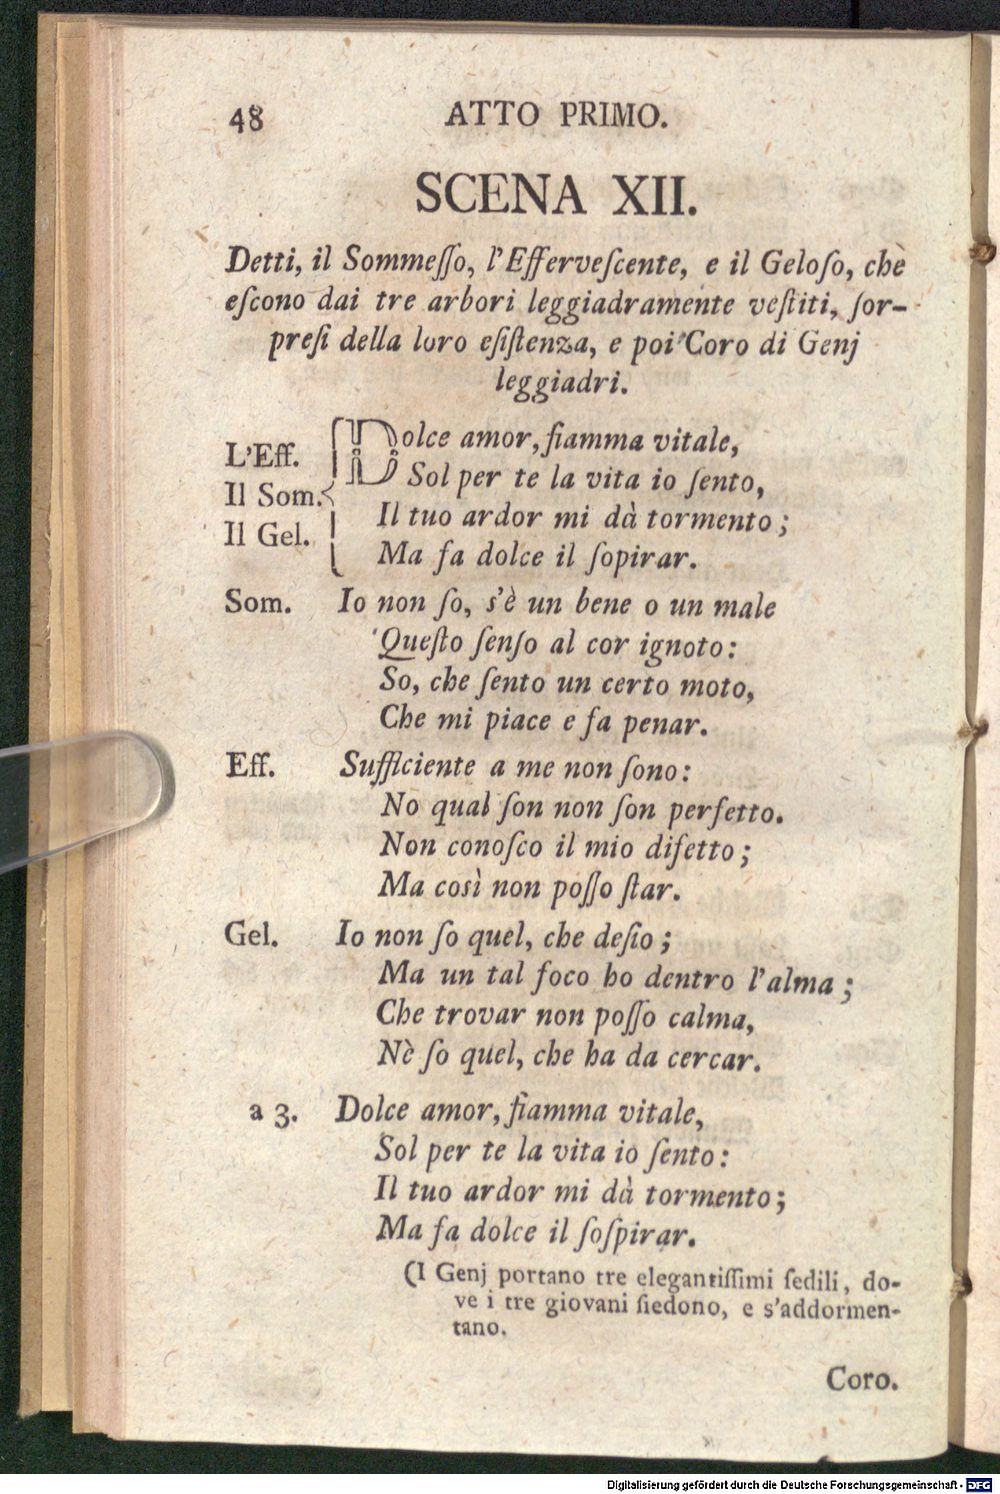 48 ATTO PRIMO.
SCENA XII.
Detti, il Sommeſſo, l'Efferveſcente, e il Geloſo, che
eſcono dai tre arbori leggiadramente veſtiti, ſor-
preſi della loro eſiſtenza, e poi Coro di Genj
leggiadri.
L'Eff.
Il Som.
Il Gel.
Dolce amor, fiamma vitale,
Sol per te la vita io ſento,
Il tuo ardor mi dà tormento;
Ma fa dolce il ſopirar.
Som. Io non ſo, s'è un bene o un male
Queſto ſenſo al cor ignoto:
So, che ſento un certo moto,
Che mi piace e fa penar.
Eff. Sufficiente a me non ſono:
No qual ſon non ſon perfetto.
Non conoſco il mio difetto;
Ma così non poſſo ſtar.
Gel. Io non ſo quel, che deſio;
Ma un tal foco ho dentro l'alma;
Che trovar non poſſo calma,
Nè ſo quel, che ha da cercar.
a 3. Dolce amor, fiamma vitale,
Sol per te la vita io ſento:
Il tuo ardor mi dà tormento;
Ma fa dolce il ſoſpirar.
(I Genj portano tre elegantiſſimi ſedili, do-
ve i tre giovani ſiedono, e s'addormen-
tano.
Coro.
Digitalisierung gefördert durch die Deutsche Forschungsgemeinschaft - DFG